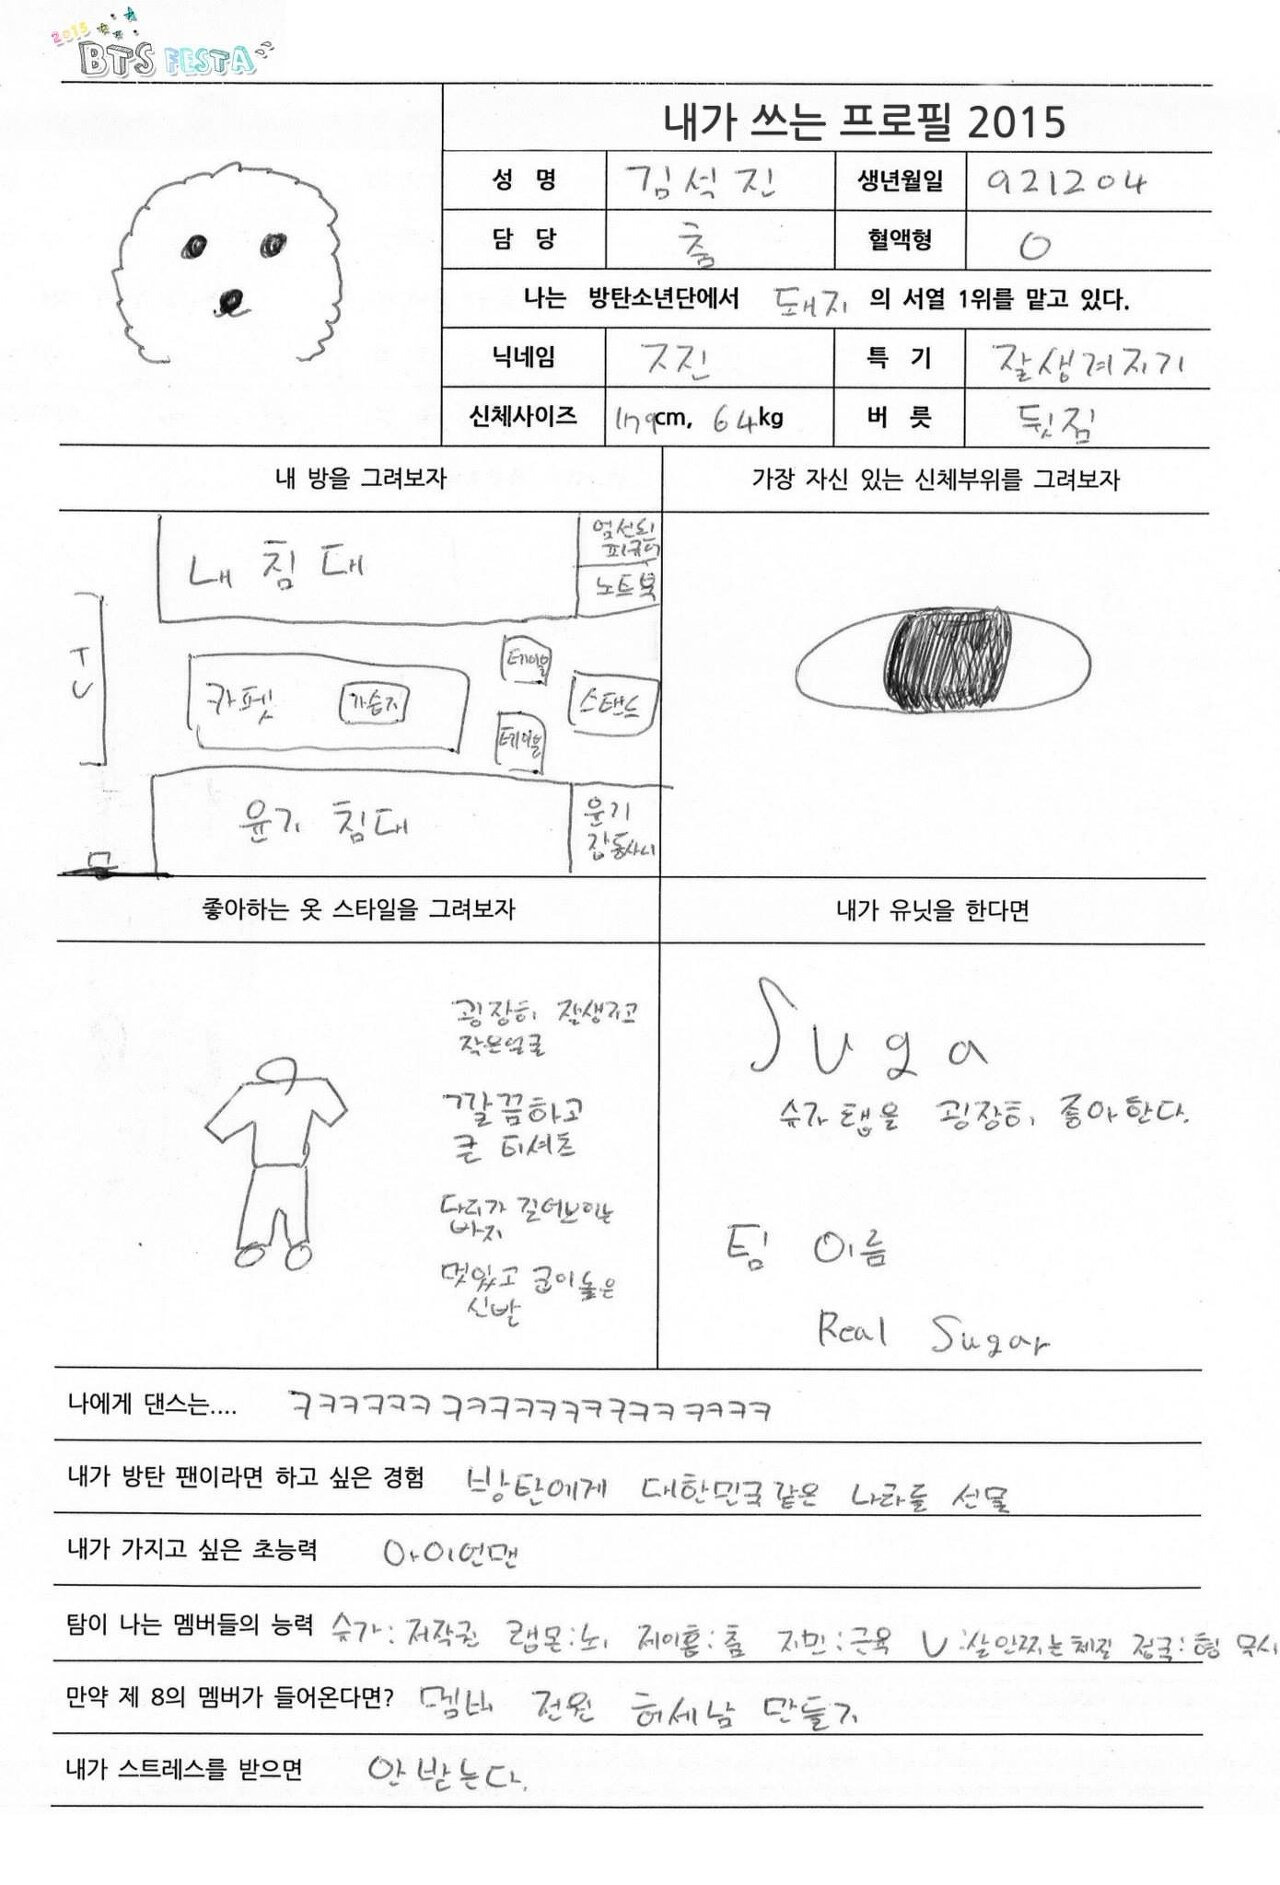 2015
BTS FESTA
내가 쓰는 프로필 2015
성 명 김석진 생년월일 921204
담 당 춤 혈액형 O
나는 방탄소년단에서 돼지 의 서열 1위를 맡고 있다.
닉네임 ㅈ진 특 기 잘생겨지기
신체사이즈 179cm, 64kg 버 릇 뒷짐
내 방을 그려보자
내 침 대
엄선된
피규어
노트북
TV
카펫
가습기
테이블
테이블
스탠드
윤기 침대
윤기
잡동사니
문
가장 자신 있는 신체부위를 그려보자
좋아하는 옷 스타일을 그려보자
굉장히 잘생기고
작은얼굴
깔끔하고
큰 티셔츠
다리가 길어보이는
바지
멋있고 굽이높은
신발
내가 유닛을 한다면
Suga
슈가 탭을 굉장히 좋아한다.
팀 이름
Real Sugar
나에게 댄스는.... ㅋㅋㅋㅋㅋㅋ ㅋㅋㅋㅋㅋㅋㅋㅋㅋㅋ ㅋㅋㅋㅋ
내가 방탄 팬이라면 하고 싶은 경험 방탄에게 대한민국같은 나라를 선물
내가 가지고 싶은 초능력 아이언맨
탐이 나는 멤버들의 능력 슈가:저작권 랩몬:뇌 제이홉:춤 지민:근육 V:살안찌는체질 정국:형 무시
만약 제 8의 멤버가 들어온다면? 멤버 전원 허세남 만들기
내가 스트레스를 받으면 안받는다.